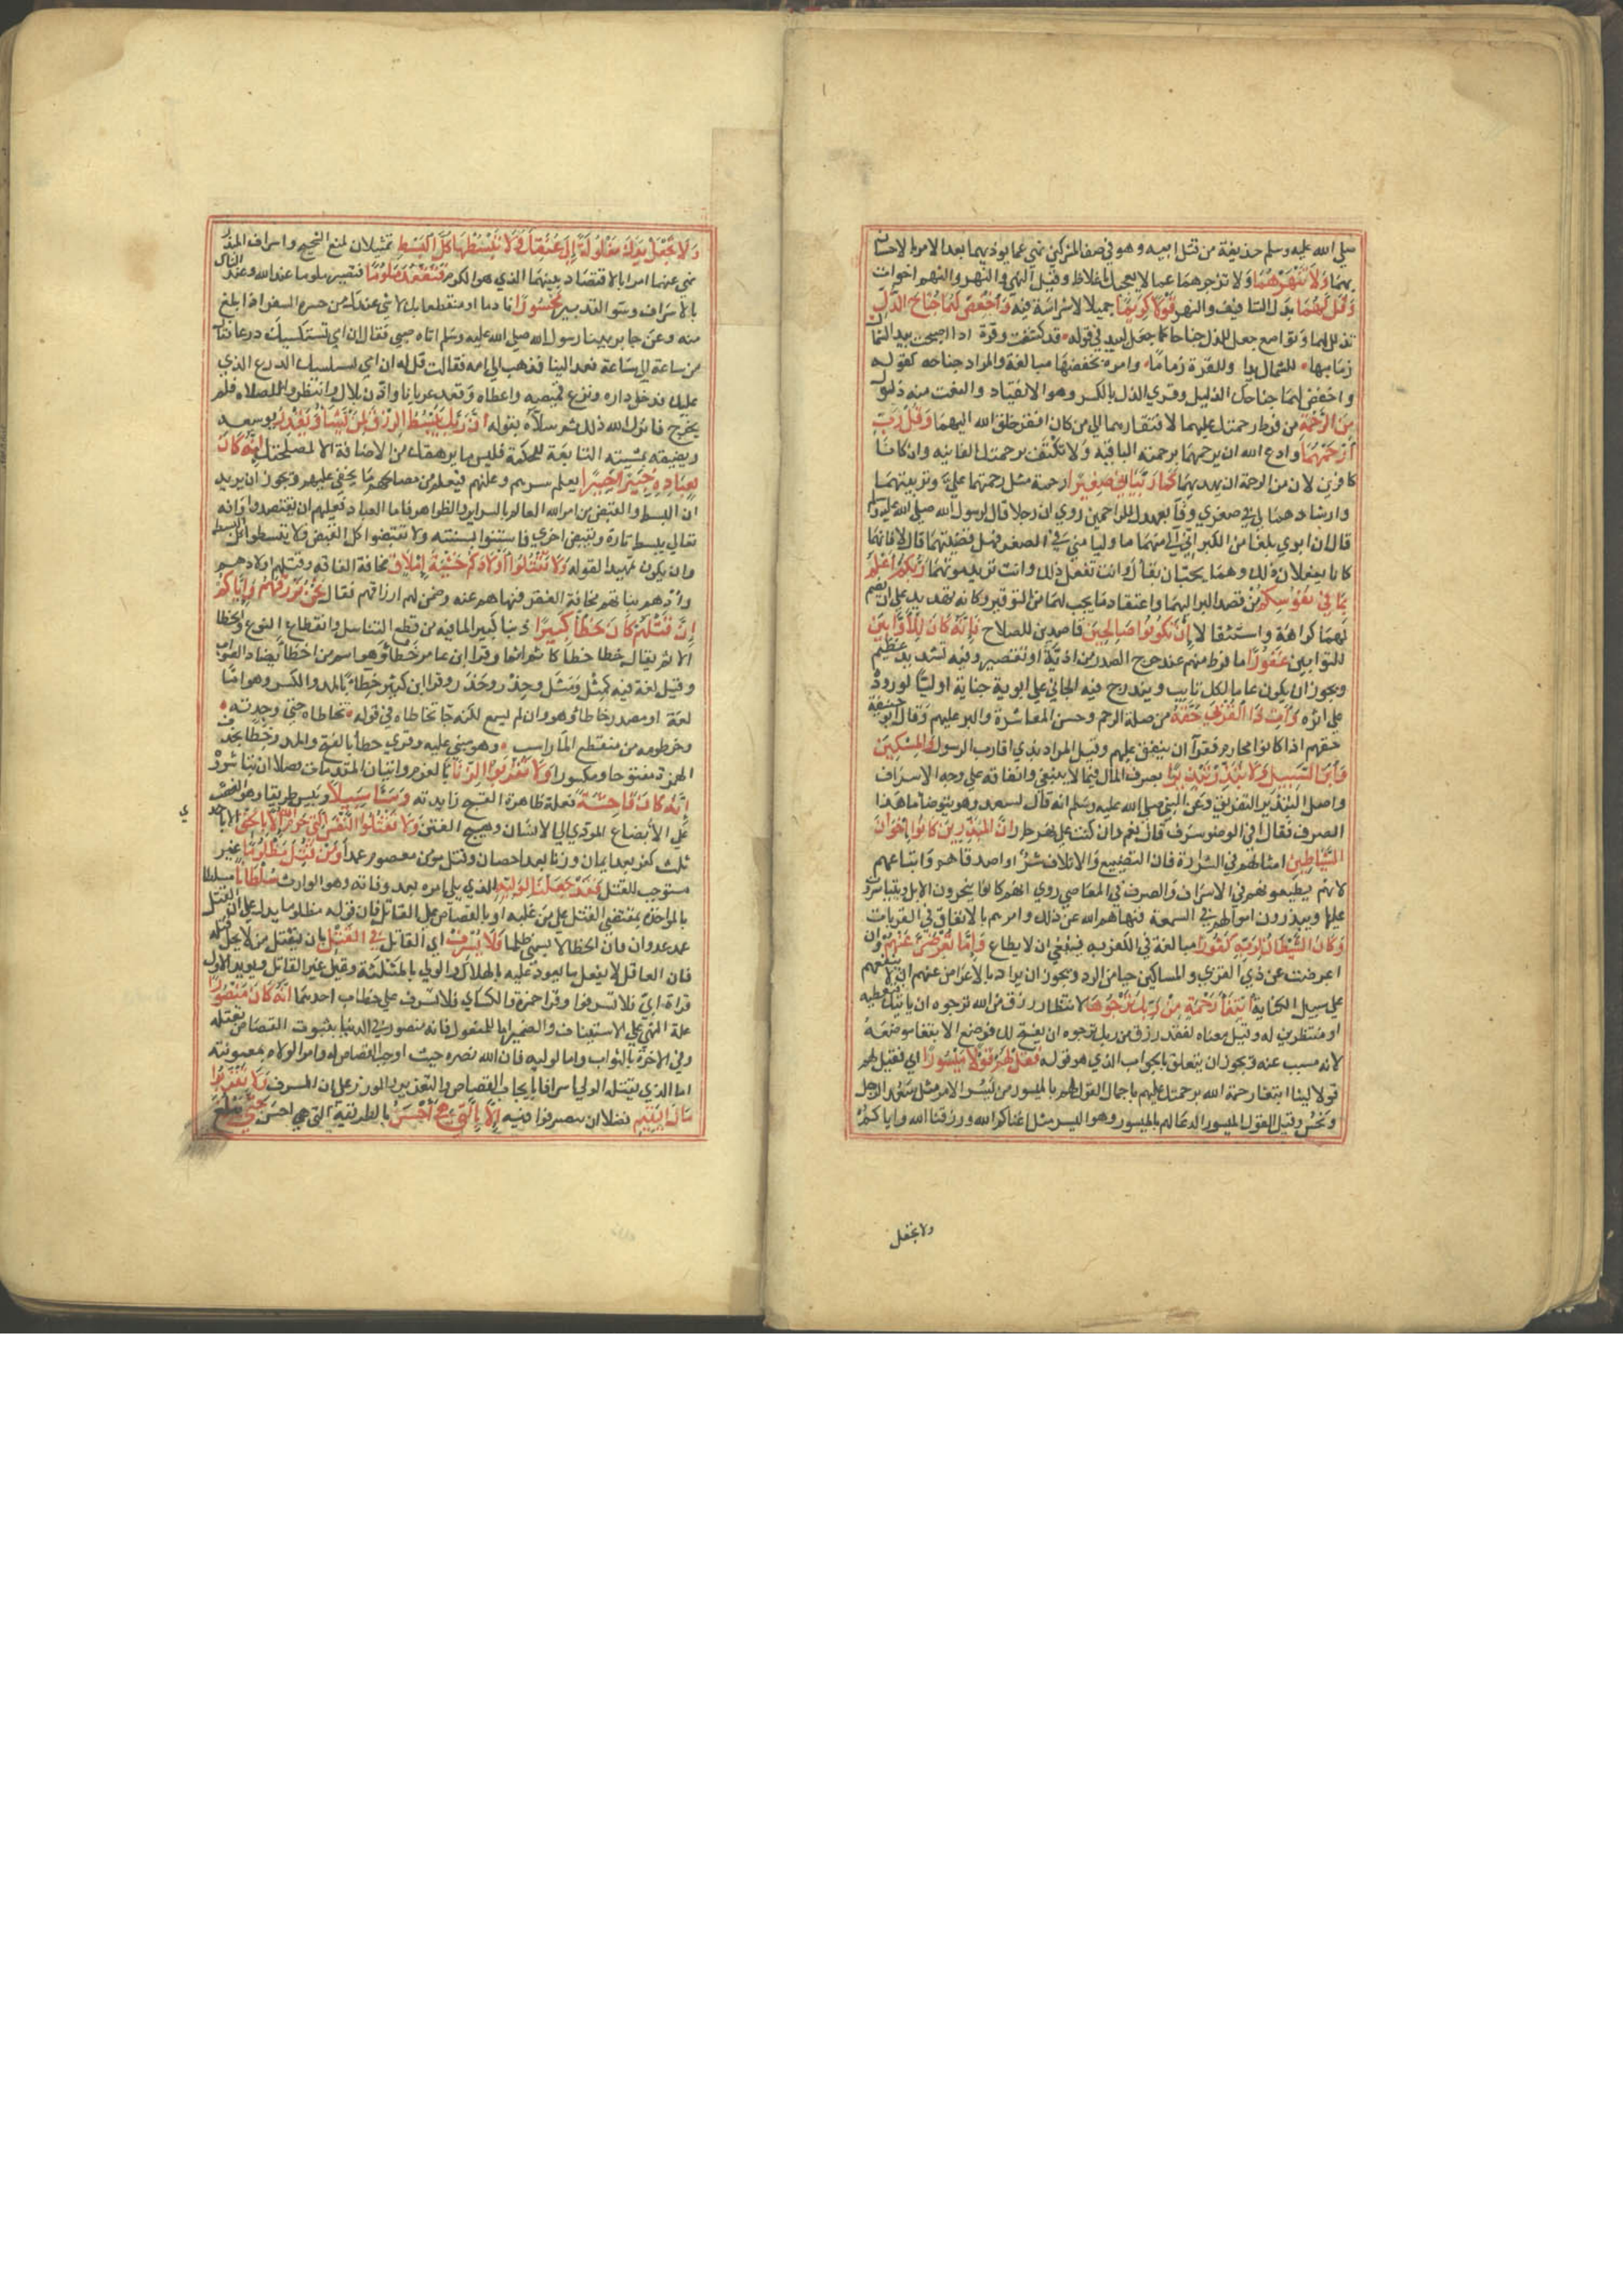 صلي الله عليه وسلم حذيفة من قتل ابيه وهو في صف المشركين نهي عما يوذيهما بعد الامر بالاحسان
بهما وَلَا تَنْهَرْهُمَا ولا تزجرهما عما لا يعجبك باغلاظ وقيل النهي والنهر والنهم اخوات
وَقُل لَهُمَا بدل التافيف والنهر قَوْلًا كَرِيمًا جميلا لا شراسة فيه وَاخْفِضْ لَهُمَا جَنَاحَ الذُّلِّ
تذلل لهما وتواضع جعل للذل جناحا كما جعل لبيد في قوله قد كشفت وقرة اذا اصبحت بيد الشمال
زمامها للشمال يدا وللقرة زماما وامره بخفضها مبالغة والمراد جناحه كقوله
واخفض لهما جناحك الذليل وقري الذل بالكسر وهو الانقياد والنعت منه ذلول
مِنَ الرَّحْمَةِ من فرط رحمتك عليهما لافتقارهما الي من كان افقر خلق الله اليهما وَقُلْ رَبِّ
ارْحَمْهُمَا وادع الله ان يرحمهما برحمته الباقية ولا تكتف برحمتك الفانيه وان كانا
كافرين لان من الرحمة ان يهديهما كَمَا رَبَّيَانِي صَغِيرًا رحمة مثل رحمتهما علي وتربيتهما
وارشادهما لي في صغري وفا بعهدك للراحمين روي ان رجلا قال لرسول الله صلي الله عليه وسلم
قال ان ابوي بلغا من الكبر اني الي منهما ما وليا مني في الصغر فهل قضيتهما قال لا فانهما
كانا يفعلان ذلك وهما يحبان بقاك وانت تفعل ذلك وانت تريد موتهما رَبُّكُمْ أَعْلَمُ
بِمَا فِي نُفُوسِكُمْ من قصد البر اليهما واعتقاد ما يجب لهما من التوقير وكانه تهديد علي ان يضمر
لهما كراهة واستثقالا إِنْ تَكُونُوا صَالِحِينَ قاصدين للصلاح فَإِنَّهُ كَانَ لِلْأَوَّابِينَ
للتوابين غَفُورًا ما فرط منهم عند حرج الصدر من اذية او تقصير وفيه تشديد عظيم
ويجوز ان يكون عاما لكل تايب ويندرج فيه الجاني علي ابويه جناية اوليا لوروده
علي اثره وَآتِ ذَا الْقُرْبَى حَقَّهُ من صلة الرحم وحسن المعاشرة والبر عليهم وقال ابو حنيفة
حقهم اذا كانوا محارم فقرآ ان ينفق عليهم وقيل المراد بذي اقارب الرسول وَالْمِسْكِينَ
وَابْنَ السَّبِيلِ وَلَا تُبَذِّرْ تَبْذِيرًا بصرف المال فيما لا ينبغي وانفاقه علي وجه الاسراف
واصل التبذير التفريق وعن النبي صلي الله عليه وسلم انه قال لسعد وهو يتوضا ما هذا
السرف فقال افي الوضو سرف قال نعم وان كنت علي نهر جار إِنَّ الْمُبَذِّرِينَ كَانُوا إِخْوَانَ
الشَّيَاطِينِ امثالهم في الشرارة فان التضييع والاتلاف شر او اصدقاهم واتباعهم
لانهم يطيعونهم في الاسراف والصرف في المعاصي روي انهم كانوا ينحرون الابل ويتياسرون
عليها ويبذرون اموالهم في السمعة فنهاهم الله عن ذلك وامرهم بالانفاق في القربات
وَكَانَ الشَّيْطَانُ لِرَبِّهِ كَفُورًا مبالغة في الكفر به فينبغي ان لا يطاع وَإِمَّا تُعْرِضَنَّ عَنْهُمُ وان
اعرضت عن ذي القربي والمساكين حيا من الرد ويجوز ان يراد بالاعراض عنهم ان لا ينفعهم
علي سبيل الكناية ابْتِغَاءَ رَحْمَةٍ مِنْ رَبِّكَ تَرْجُوهَا لانتظار رزق من الله ترجوه ان ياتيك فتعطيه
او منتظرين له وقيل معناه لفقد رزق من ربك ترجوه ان يفتح لك فوضع الابتغا موضعه
لانه مسبب عنه ويجوز ان يتعلق بالجواب الذي هو قوله فَقُلْ لَهُمْ قَوْلًا مَيْسُورًا اي فقل لهم
قولا لينا ابتغا رحمة الله برحمتك عليهم باجمال القول لهم بالميسور من يُسر الامر مثل سُعِد الرجل
ونُحس وقيل القول الميسور الدعا لهم بالميسور وهو اليسر مثل اغناكم الله ورزقنا الله واياكم
ولا تجعل
وَلَا تَجْعَلْ يَدَكَ مَغْلُولَةً إِلَى عُنُقِكَ وَلَا تَبْسُطْهَا كُلَّ الْبَسْطِ تمثيلان لمنع الشحيح واسراف المبذر
نهي عنهما امرا بالاقتصاد بينهما الذي هو الكرم فَتَقْعُدَ مَلُومًا فتصير ملوما عند الله وعند الناس
بالاسراف وسو التدبير مَحْسُورًا نادما او منقطعا بك لا شي عندك من حسره السفر اذا بلغ
منه وعن جابر بينا رسول الله صلي الله عليه وسلم اتاه صبي فقال ان امي تستكسيك درعا فقال
من ساعة الي ساعة فعد الينا فذهب الي امه فقالت قل له ان امي تستكسيك الدرع الذي
عليك فدخل داره ونزع قميصه واعطاه وقعد عريانا واذن بلال وانتظروا للصلاه فلم
يخرج فانزل الله ذلك ثم سلاه بقوله إِنَّ رَبَّكَ يَبْسُطُ الرِّزْقَ لِمَنْ يَشَاءُ وَيَقْدِرُ يوسعه
ويضيقه بمشيته التابعة للحكمة فليس ما يرهقك من الاضافة الا لمصلحتك إِنَّهُ كَانَ
بِعِبَادِهِ خَبِيرًا بَصِيرًا يعلم سرهم وعلنهم فيعلم من مصالحهم ما يخفي عليهم ويجوز ان يريد
ان البسط والقبض من امر الله العالم بالسراير والظواهر فاما العباد فعليهم ان يقتصدوا وانه
تعالي يبسط تارة ويقبض اخري فاستنوا بسنته ولا تقبضوا كل القبض ولا تبسطوا كل البسط
وان يكون تمهيدا لقوله وَلَا تَقْتُلُوا أَوْلَادَكُمْ خَشْيَةَ إِمْلَاقٍ مخافة الفاقه وقتلهم اولادهم
وأدهم بناتهم مخافة الفقر فنهاهم عنه وضمن لهم ارزاقهم فقال نَحْنُ نَرْزُقُهُمْ وَإِيَّاكُمْ
إِنَّ قَتْلَهُمْ كَانَ خِطْأً كَبِيرًا ذنبا كبيرا لما فيه من قطع التناسل وانقطاع النوع والخطا
الاثم يقال خطا خطأ كاثم اثما وقرا ابن عامر خَطَأً وهو اسم من اخطأ يضاد الصواب
وقيل لغة فيه كمِثْل ومَثَل وحِذْر وحَذَر وقرا ابن كثير خِطَاءً بالمد والكسر وهو اما
لغة او مصدر خاطا وهو وان لم يسمع لكنه جا تخاطاه في قوله تخاطاه حتي وجدته
وخرطومه من منقطع الما راسب وهو مبني عليه وقري خطا بالفتح والمد وخِطًا بحذف
الهمزة مفتوحا ومكسورا وَلَا تَقْرَبُوا الزِّنَا بالعزم واتيان المقدمات فضلا ان تباشروه
إِنَّهُ كَانَ فَاحِشَةً فعلة ظاهرة القبح زايدته وَسَاءَ سَبِيلًا وبيس طريقا وهو الغصب
علي الابضاع المودي الي الانساب وهيج الفتن وَلَا تَقْتُلُوا النَّفْسَ الَّتِي حَرَّمَ اللَّهُ إِلَّا بِالْحَقِّ الا باحدي
ثلث كفر بعد ايمان وزنا بعد احصان وقتل مومن معصوم عمدا وَمَنْ قُتِلَ مَظْلُومًا غير
مستوجب للقتل فَقَدْ جَعَلْنَا لِوَلِيِّهِ للذي يلي امره بعد وفاته وهو الوارث سُلْطَانًا تسلطا
بالمواخذة بمقتضي القتل علي من عليه او بالقصاص علي القاتل فان قوله مظلوما يدل علي ان القتل
عمد عدوان فان الخطا لا يسمي ظلما فَلَا يُسْرِفْ اي القاتل فِي الْقَتْلِ بان يقتل من لا يحق قتله
فان العاقل لا يفعل ما يعود عليه بالهلاك او الولي بالمثلة وقتل غير القاتل ويويد الاول
قراة ابيّ فلا تسرفوا وقرا حمزة والكساي فلا تسرف علي خطاب احدهما إِنَّهُ كَانَ مَنْصُورًا
علة النهي علي الاستيناف والضمير اما للمقتول فانه منصور في الدنيا بثبوت القصاص بقتله
وفي الاخرة بالثواب واما لوليه فان الله نصره حيث اوجب القصاص له وامر الولاه بمعونته
اما الذي يقتله الولي اسرافا بايجاب القصاص والتعذير والوزر علي ان المسرف وَلَا تَقْرَبُوا
مَالَ الْيَتِيمِ فضلا ان تتصرفوا فيه إِلَّا بِالَّتِي هِيَ أَحْسَنُ بالطريقة التي هي احسن حَتَّى يَبْلُغَ